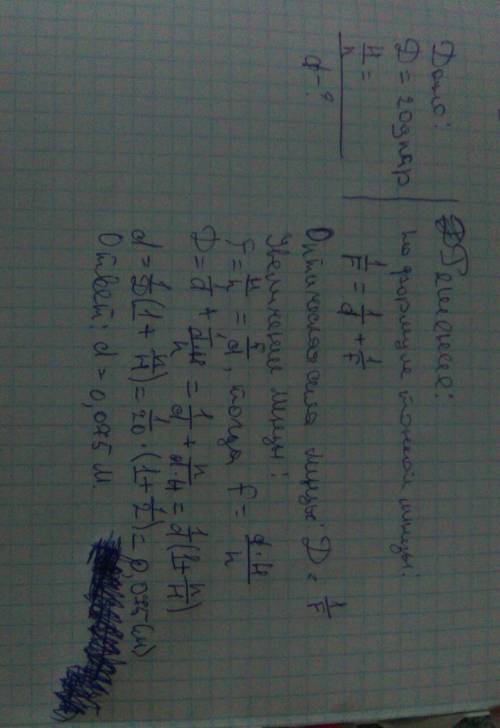 Дано:
D = 20 дптр
H/h =
d - ?
Решение:
по формуле тонкой линзы:
1/F = 1/d + 1/f
Оптическая сила линзы: D = 1/F
Увеличение линзы:
Г = H/h = f/d, тогда f = d·H/h
D = 1/d + 1/(dH/h) = 1/d + h/(d·H) = 1/d(1 + h/H)
d = 1/D(1 + h/H) = 1/20 · (1 + 1/2) = 0,075 (м)
Ответ: d = 0,075 м.